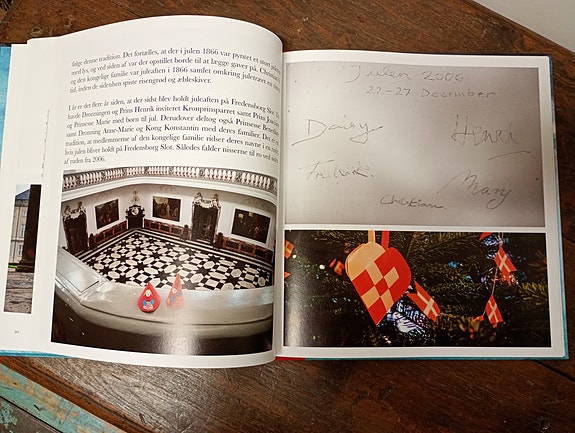 følge denne tradition. Det fortælles, at der i julen 1866 var pyntet et stort juletræ
med lys, og ved siden af var der opstillet borde til at lægge gaver på. Christian
og den kongelige familie var juleaften i 1866 samlet omkring juletræet en stor
tid, inden de sidenhen spiste risengrød og æbleskiver.
I år er det flere år siden, at der sidst blev holdt juleaften på Fredensborg Slot.
havde Dronningen og Prins Henrik inviteret Kronprinsparret samt Prins Joachim
og Prinsesse Marie med børn til jul. Derudover deltog også Prinsesse Benedikte
samt Dronning Anne-Marie og Kong Konstantin med deres familier. Det er en
tradition, at medlemmerne af den kongelige familie ridser deres navne i en rude,
hvis julen bliver holdt på Fredensborg Slot. Således falder nisserne til ro ved siden
af ruden fra 2006.
Julen 2006
22-27 December
Daisy
Henri
Frederik.
Mary
Christian